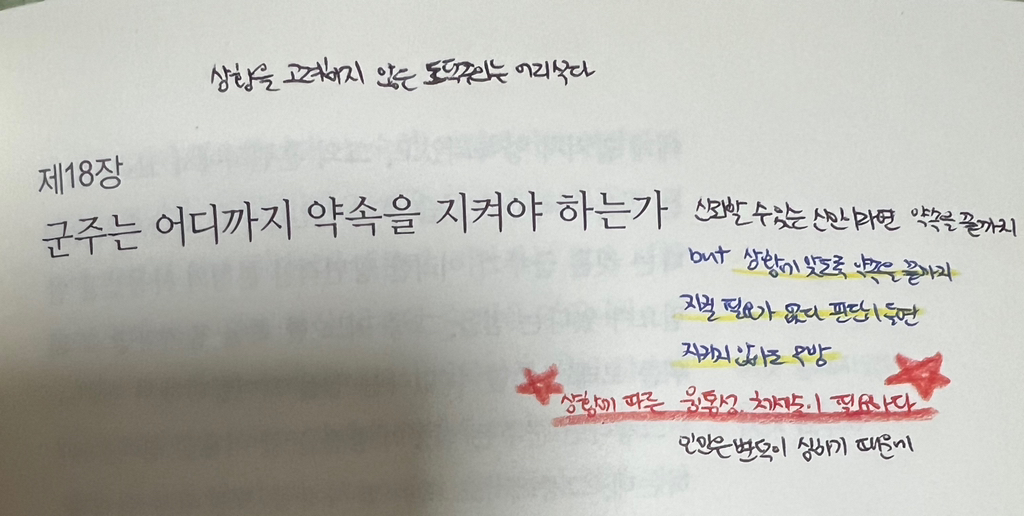 상황을 고려하지 않는 도덕주의는 어리석다
제18장
군주는 어디까지 약속을 지켜야 하는가
신뢰할 수 있는 신민이라면 약속을 끝까지
but 상황에 맞도록 약속을 끝까지
지킬 필요가 없다 판단이 들면
지키지 않아도 무방
상황에 따른 융통성, 처세술이 필요하다
인간은 변덕이 심하기 때문에